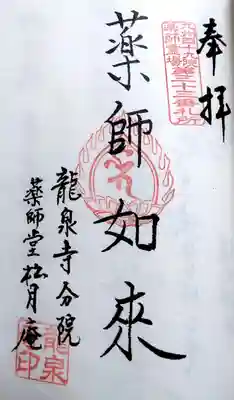 奉拝
九州四十九院
薬師霊場
第二十二番札所
薬師如來
龍泉寺分院
薬師堂松月庵
龍泉
印